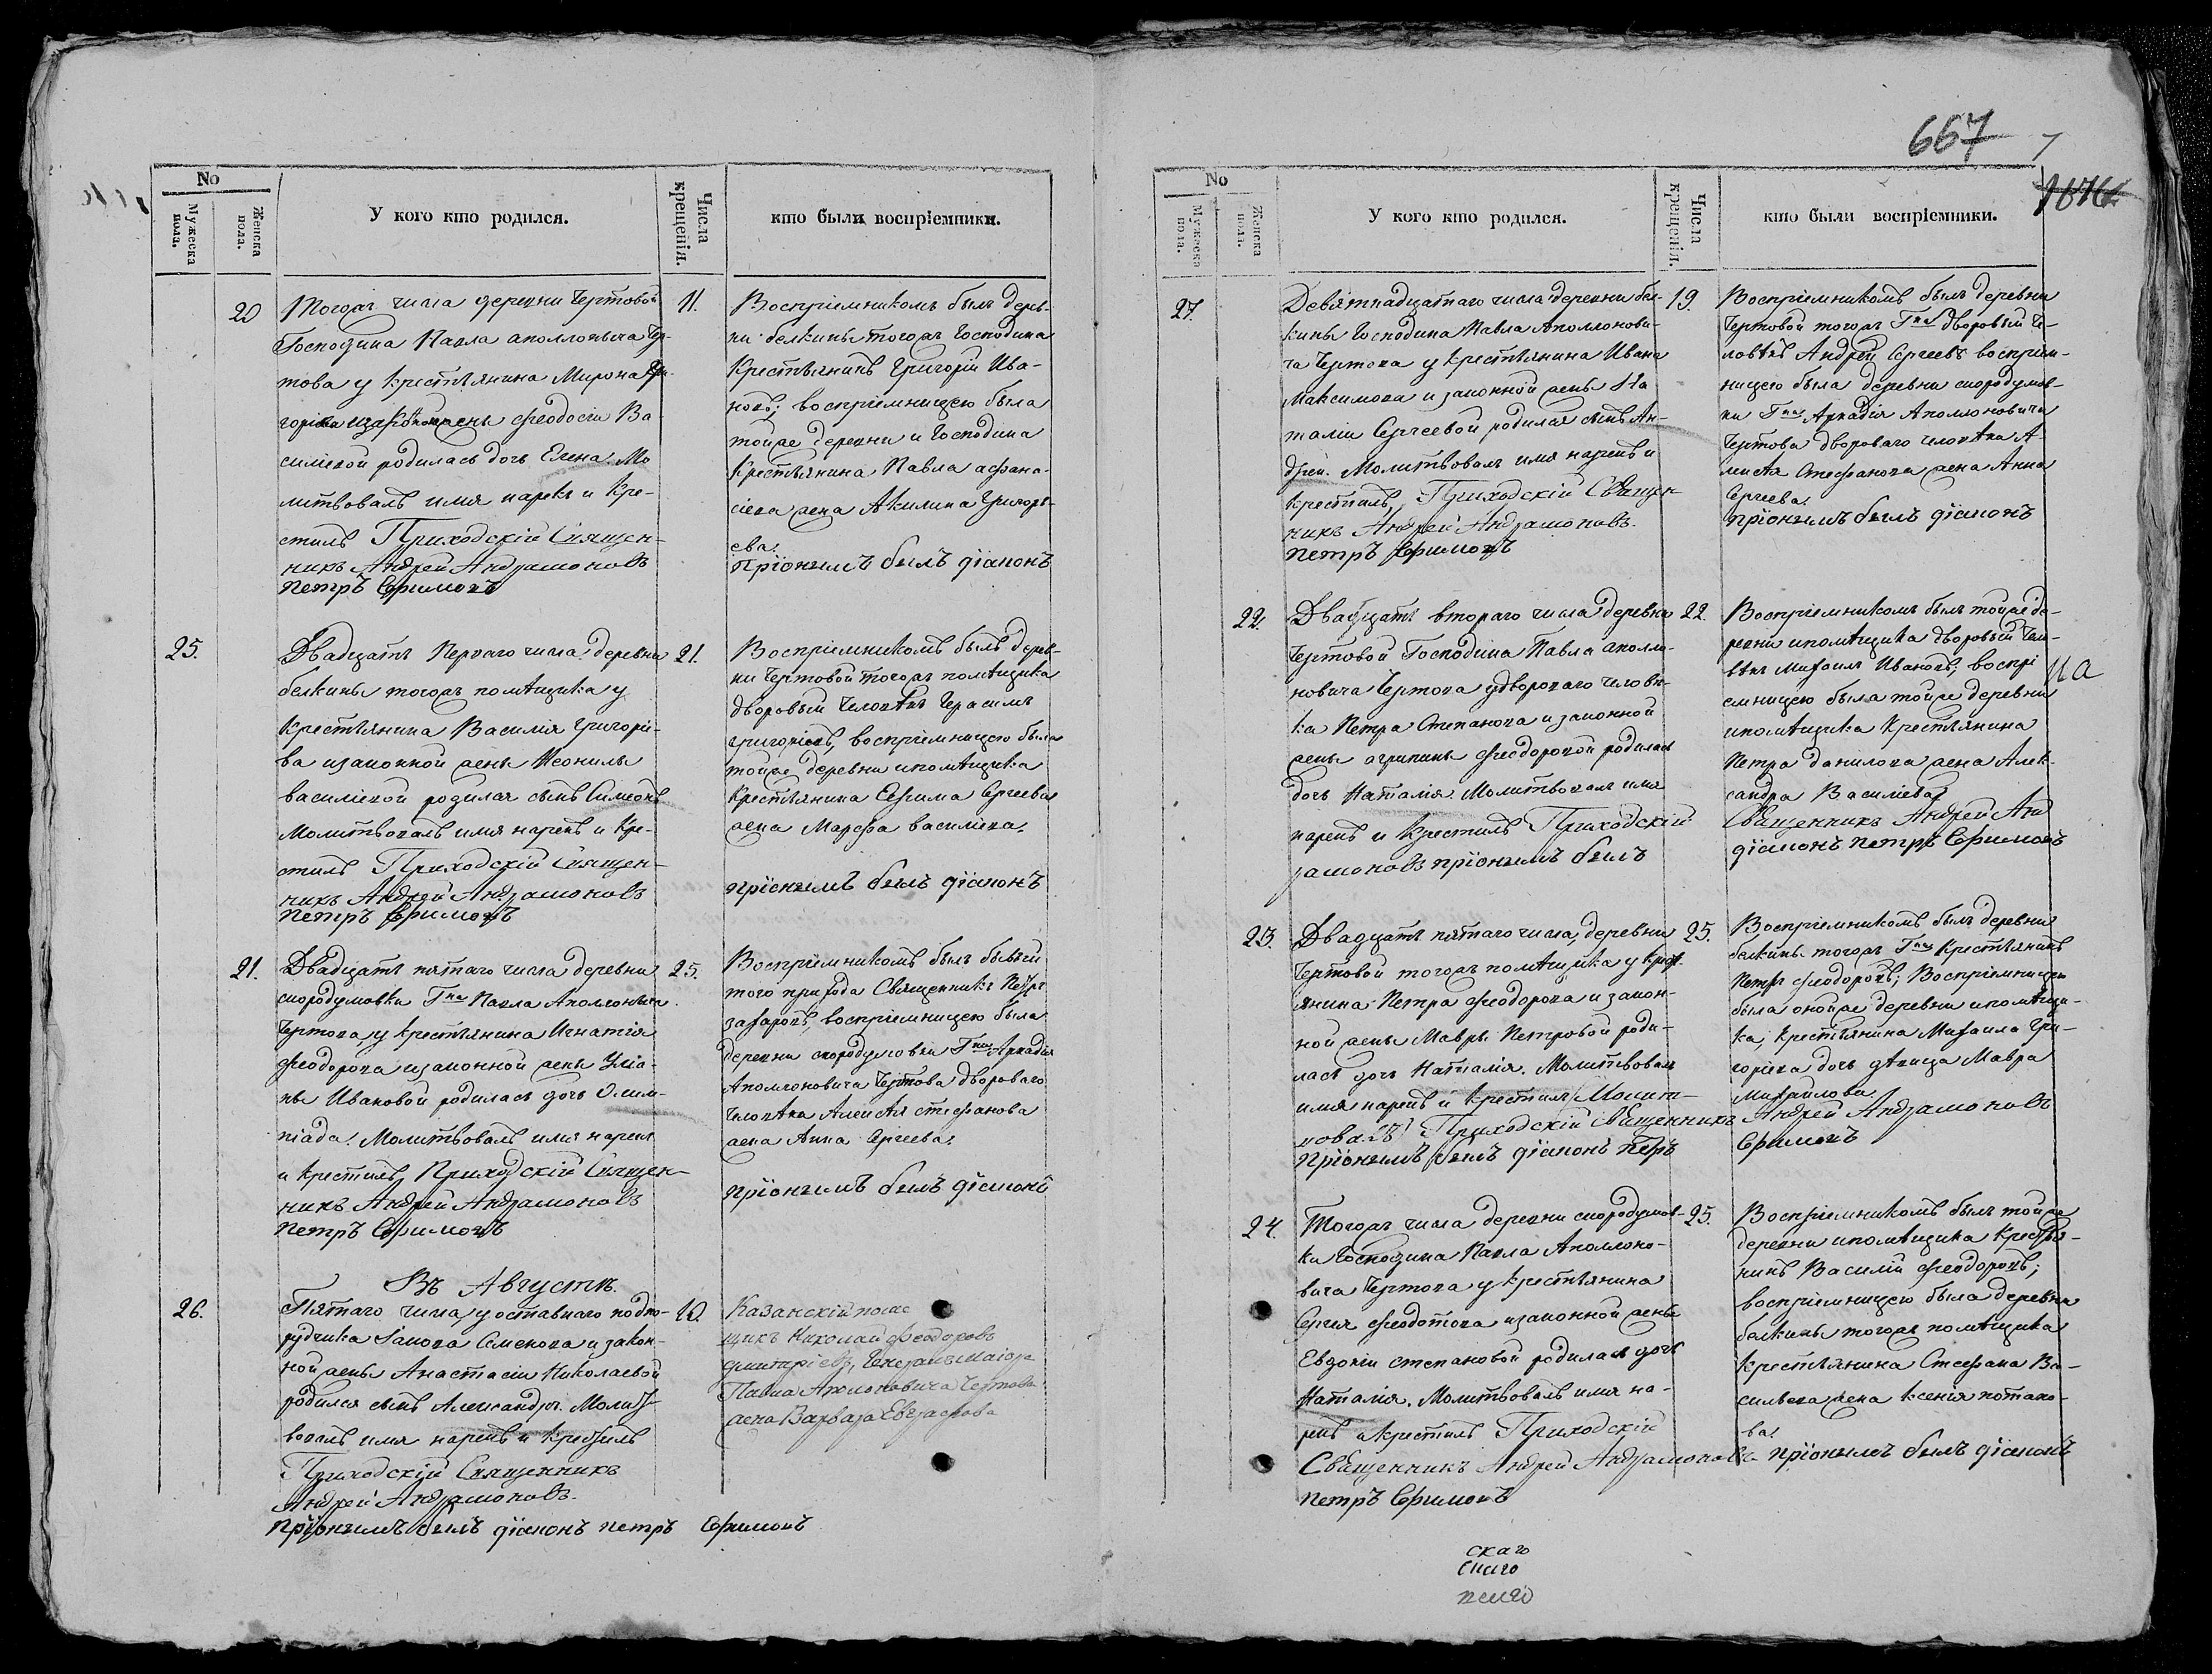 667
7
1876
No
Мужеска пола.
Женска пола.
У кого кто родился.
Числа крещенія.
кто были воспріемники.
20
Тогожъ числа деревни Чертовой
Господина Павла аполлоныча Чер-
това у крестьянина Мирона Гри-
горіева жены феодосіи Ва-
силіевой родилась дочь Елена. Мо
литвовалъ имя нарекъ и Кре-
стилъ Приходскій Священ-
никъ Андрей Андрамоновъ
Петръ Ефимовъ
11.
Воспріемникомъ былъ дерев-
ни белкины тогожъ Господина
Крестьянинъ Григорій Ива-
новъ; воспріемницею была
тойже деревни и Господина
Крестьянина Павла афана-
сіева жена Акилина Григорь-
ева.
Пріонымъ былъ діаконъ
25.
Двадцать Перваго числа деревни
белкины тогожъ помѣщика у
Крестьянина Василія Григорі-
ва и законной жены Неонилы
василіевой родился сынъ Симеонъ
Молитвовалъ имя нарекъ и Кре-
стилъ Приходскій Священ-
никъ Андрей Андрамоновъ
Петръ Ефимовъ
21.
Воспріемникомъ былъ дерев-
ни Чертовой тогожъ помѣщика
дворовый Человѣкъ Герасимъ
григоріевъ, воспріемницею была
тойже деревни и помѣщика
Крестьянина Ефима Сергеева
жена Марфа василіева.
пріонымъ былъ діаконъ
21.
Двадцать пятаго числа деревни
скородумовки Гна Павла Аполлоныча
Чертова, у крестьянина Игнатія
феодорова и законной жены Улиа-
ны Ивановой родилась дочь Олим-
піада. Молитвовалъ имя нарекъ
и крестилъ Приходскій Священ-
никъ Андрей Андрамоновъ
Петръ Ефимовъ
25.
Воспріемникомъ былъ бывый
того прихода Священникъ Петръ
захаровъ, воспріемницею была
деревни скородумовки Гна Аркадія
Аполлоновича Чертова двороваго
человѣка Алексѣя стефанова
жена Анна Сергеева.
пріонымъ былъ діаконъ
Въ Августѣ.
26.
Пятаго числа у оставнаго подпо-
рудчика Іакова Семенова и закон-
ной жены Анастасіи Николаевой
родился сынъ Александръ. Молит-
вовалъ имя нарекъ и крестилъ
Приходскій Священникъ
Андрей Андрамоновъ.
Пріонымъ былъ діаконъ петръ Ефимовъ
10.
Казанскій поме
щикъ Николай феодоровъ
дмитріевъ, Генералъ Маіора
Павла Аполоновича Чертова
жена Варвара Евграфова
No
Мужеска пола.
Женска пола.
У кого кто родился.
Числа крещенія.
кто были воспріемники.
27.
Девятнадцатаго числа деревни бел-
кины Господина Павла Аполлонови-
ча Чертова у крестьянина Ивана
Максимова и законной жены На
таліи Сергеевой родился сынъ Ан-
дрей. Молитвовалъ имя нарекъ и
крестилъ, Приходскій Священ-
никъ Андрей Андрамоновъ.
Петръ Ефимовъ
19.
Воспріемникомъ былъ деревни
Чертовой тогожъ Гна дворовый Че-
ловѣкъ Андрей Сергеевъ воспріем-
ницею была деревни скородумов-
ки Гна Аркадія Аполлоновича
Чертова двороваго человѣка А-
лексѣя Стефанова жена Анна
Сергеева.
пріонымъ былъ діаконъ
22.
Двадцать втораго числа деревни
Чертовой Господина Павла аполло-
новича Чертова у двороваго челове-
ка Петра Степанова и законной
жены агрипины феодоровой родилась
дочь Наталія. Молитвовалъ имя
нарекъ и крестилъ Приходскій
рамоновъ пріонымъ былъ
22.
Воспріемникомъ былъ тойже де-
ревни и помѣщика дворовый Чело-
вѣкъ Михаилъ Ивановъ; воспрі
емницею была тойже деревни
и помѣщика Крестьянина
Петра данилова жена Алек-
сандра Василіева
Священникъ Андрей Анд
діаконъ Петръ Ефимовъ
на
23.
Двадцать пятаго числа, деревни
Чертовой тогожъ помѣщика у крест-
янина Петра феодорова и закон-
ной жены Мавры Петровой роди-
лась дочь Наталія. Молитвовалъ
имя нарекъ и крестилъ
Приходскій Священникъ Андрей Андрамоновъ
Пріонымъ былъ діаконъ Петръ Ефимовъ
25.
Воспріемникомъ былъ деревни
белкины тогожъ Гна Крестьянинъ
Петръ феодоровъ; Воспріемницею
была онойже деревни и помѣщи-
ка, крестьянина Михаила Гри-
горіева дочь дѣвица Мавра
Михайлова.
24.
Тогожъ числа деревни скородумов-
ки Господина Павла Аполлоно-
вича Чертова у крестьянина
Сергія феодотова и законной жены
Евдокіи степановой родилась дочь
Наталія. Молитвовалъ имя на-
рекъ и крестилъ Приходскій
Священникъ Андрей Андрамоновъ пріонымъ былъ діаконъ
Петръ Ефимовъ
25.
Воспріемникомъ былъ тойже
деревни и помѣщика Крестья-
нинъ Василій феодоровъ;
воспріемницею была деревни
белкины тогожъ помѣщика
крестьянина Стефана Ва-
сильева жена Ксенія потапо-
ва.
скаго
скаго